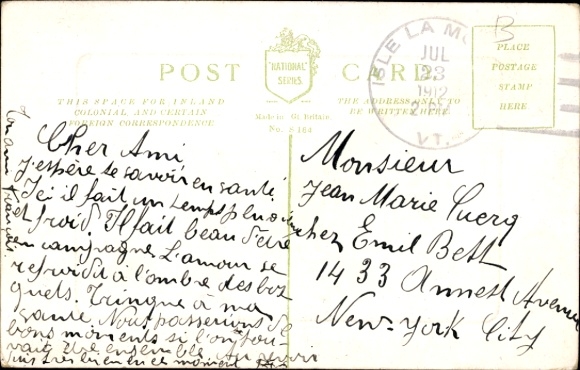 POST CARD.
"NATIONAL"
SERIES.
THIS SPACE FOR INLAND
COLONIAL, AND CERTAIN
FOREIGN CORRESPONDENCE
Made in Gt Britain.
No. S 164
THE ADDRESS ONLY TO
BE WRITTEN HERE
PLACE
POSTAGE
STAMP
HERE
B
ISLE LA MO
JUL
23
1912
VT.
Cher Ami
J'espère te savoir en santé.
Ici il fait un temps pluvieux
et froid. Il fait beau d'être
en campagne L'amour se
refroidit à l'ombre des bos
quets. Trinque à ma
santé Nous passerions de
bons moments si l'on pou-
vait être ensemble. Au revoir
ce moment
Ton ami François
Monsieur
Jean Marie Cuerq
chez Emil Bett
1433 Annest Avenue
New-York City